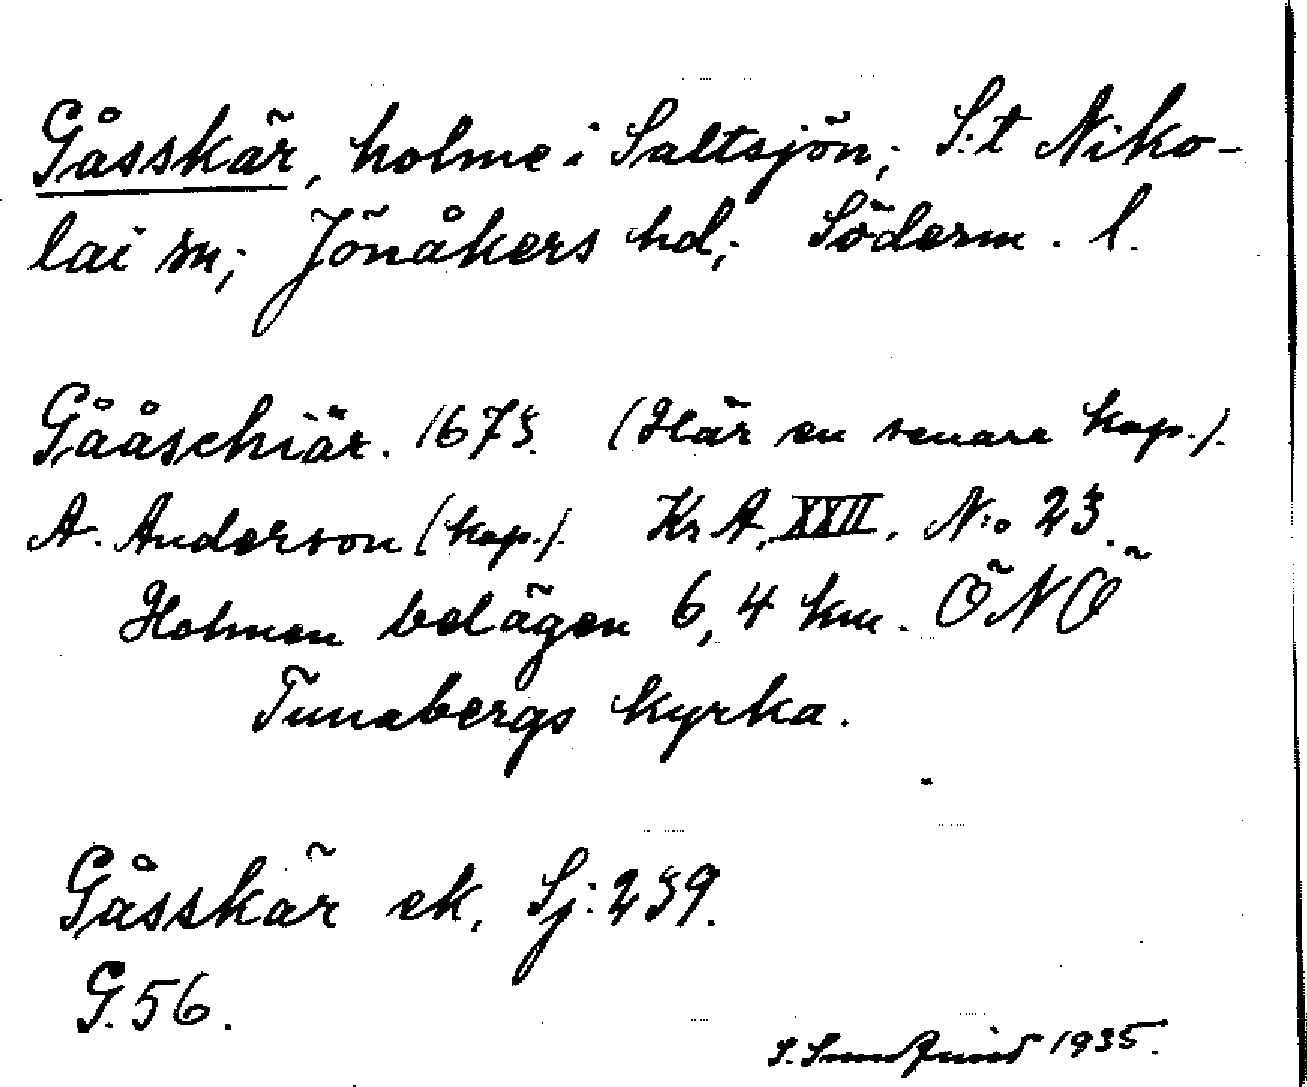 Gåsskär, holme i Saltsjön; S:t Niko-
lai sn; Jönåkers hd; Söderm. l.
Gååschiär. 1673. (Här en senare kop.).
A. Anderson (kop.). Kr A. XXII. N:o 23.
Holmen belägen 6,4 km. ÖNÖ
Tunabergs kyrka.
Gåsskär ek. Sj: 239.
G. 56.
S. 1935.